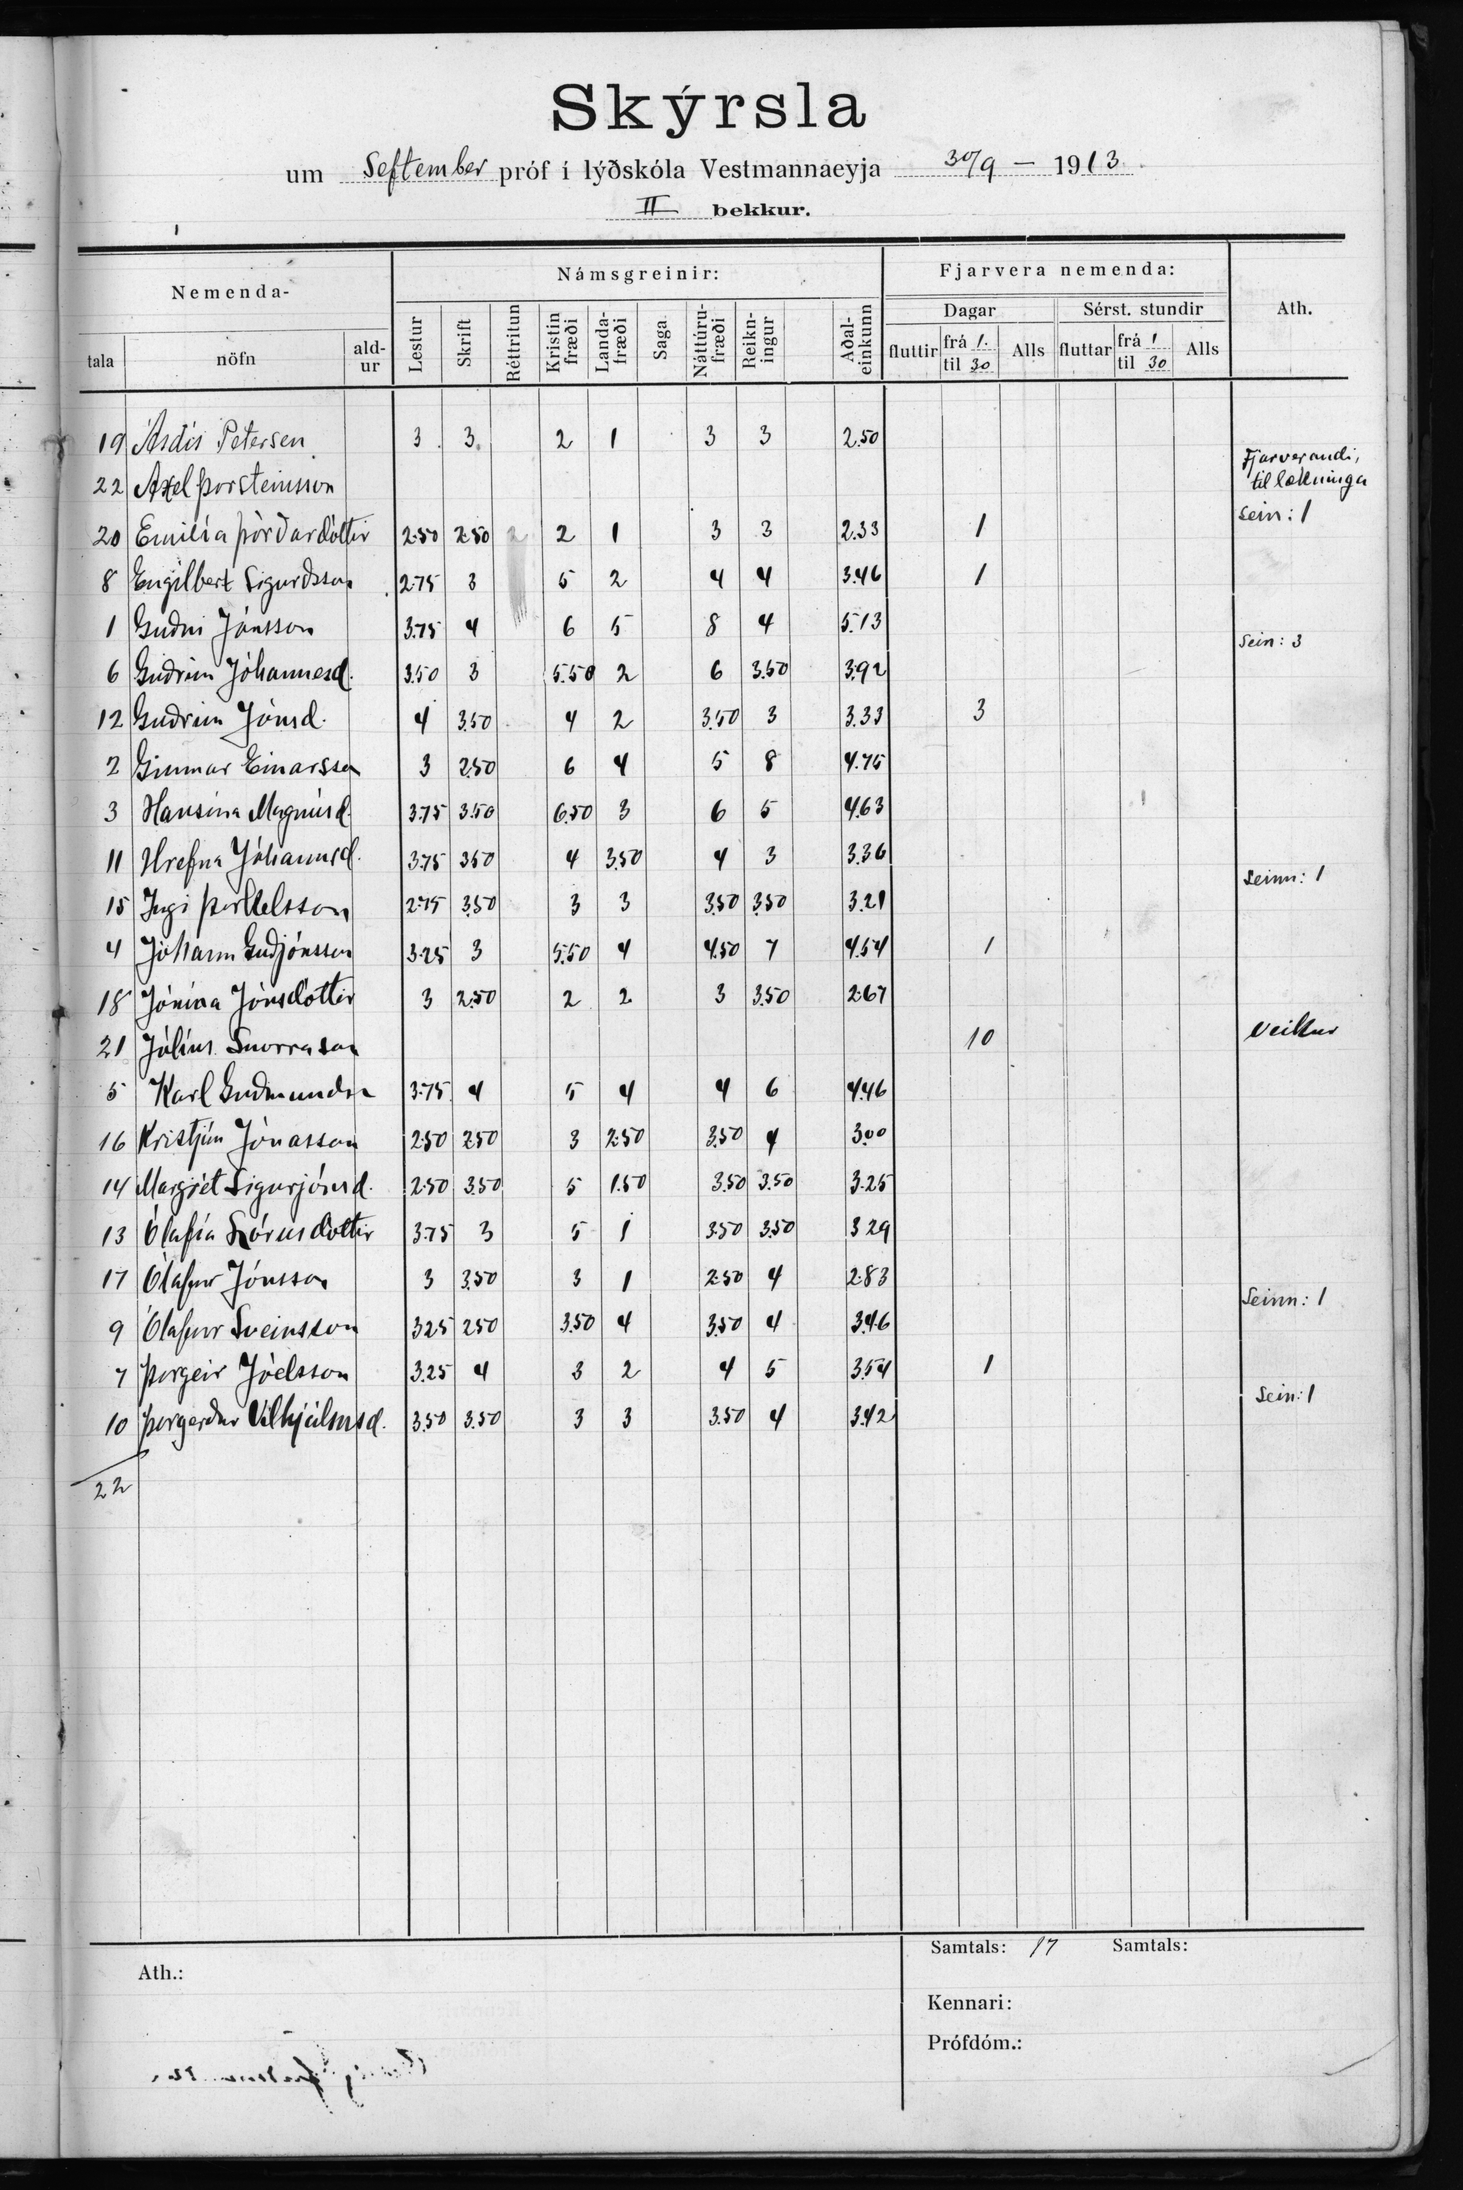 Skýrsla
um Seftember próf í lýðskóla Vestmannaeyja 30/9 – 1913
II bekkur.
Nemenda- Námsgreinir: Fjarvera nemenda: Ath.
Dagar Sérst. stundir
tala nöfn ald-ur Lestur Skrift Réttritun Kristin fræði Landa-fræði Saga Náttúru-fræði Reikn-ingur Aðal-einkunn fluttir frá 1. til 30 Alls fluttar frá 1 til 30 Alls
19 Ásdís Petersen 3 3 2 1 3 3 2.50
22 Axel Þorsteinsson Fjarverandi, til lækninga
20 Emilía Þórðardóttir 2.50 2.50 2 2 1 3 3 2.33 1 Sein: 1
8 Engilbert Sigurðsson 2.75 3 5 2 4 4 3.46 1
1 Guðni Jónsson 3.75 4 6 5 8 4 5.13
6 Guðrún Jóhannesd. 3.50 3 5.50 2 6 3.50 3.92 Sein: 3
12 Guðrún Jónsd. 4 3.50 4 2 3.50 3 3.33 3
2 Gunnar Einarsson 3 2.50 6 4 5 8 4.75
3 Hansína Magnúsd. 3.75 3.50 6.50 3 6 5 4.63
11 Hrefna Jóhannsd. 3.75 3.50 4 3.50 4 3 3.36
15 Ingi Þorkelsson 2.75 3.50 3 3 3.50 3.50 3.21 Seinn: 1
4 Jóhann Guðjónsson 3.25 3 5.50 4 4.50 7 4.54 1
18 Jónína Jónsdóttir 3 2.50 2 2 3 3.50 2.67
21 Júlíus Snorrason 10 Veikur
5 Karl Guðmundsn 3.75 4 5 4 4 6 4.46
16 Kristján Jónasson 2.50 2.50 3 2.50 3.50 4 3.00
14 Margrét Sigurjónsd. 2.50 3.50 5 1.50 3.50 3.50 3.25
13 Ólafía dóttir 3.75 3 5 1 3.50 3.50 3.29
17 Ólafur Jónsson 3 3.50 3 1 2.50 4 2.83
9 Ólafur Sveinsson 3.25 2.50 3.50 4 3.50 4 3.46 Seinn: 1
7 Þorgeir Jóelsson 3.25 4 3 2 4 5 3.54 1
10 Þorgerður Vilhjálmsd. 3.50 3.50 3 3 3.50 4 3.42 Sein: 1
22
Samtals: 17 Samtals:
Ath.:
Kennari:
Prófdóm.: